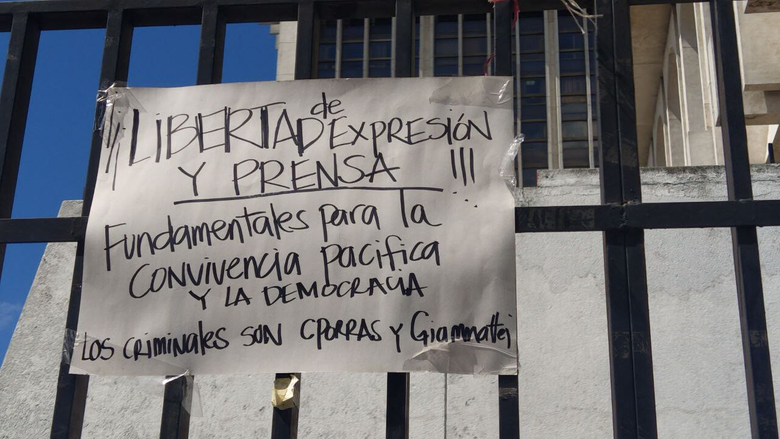 ¡¡¡LIBERTAD de EXPRESIÓN
Y PRENSA !!!
Fundamentales para la
CONVIVENCIA pacífica
Y LA DEMOCRACIA
LOS CRIMINALES SON CPORRAS Y Giammattei